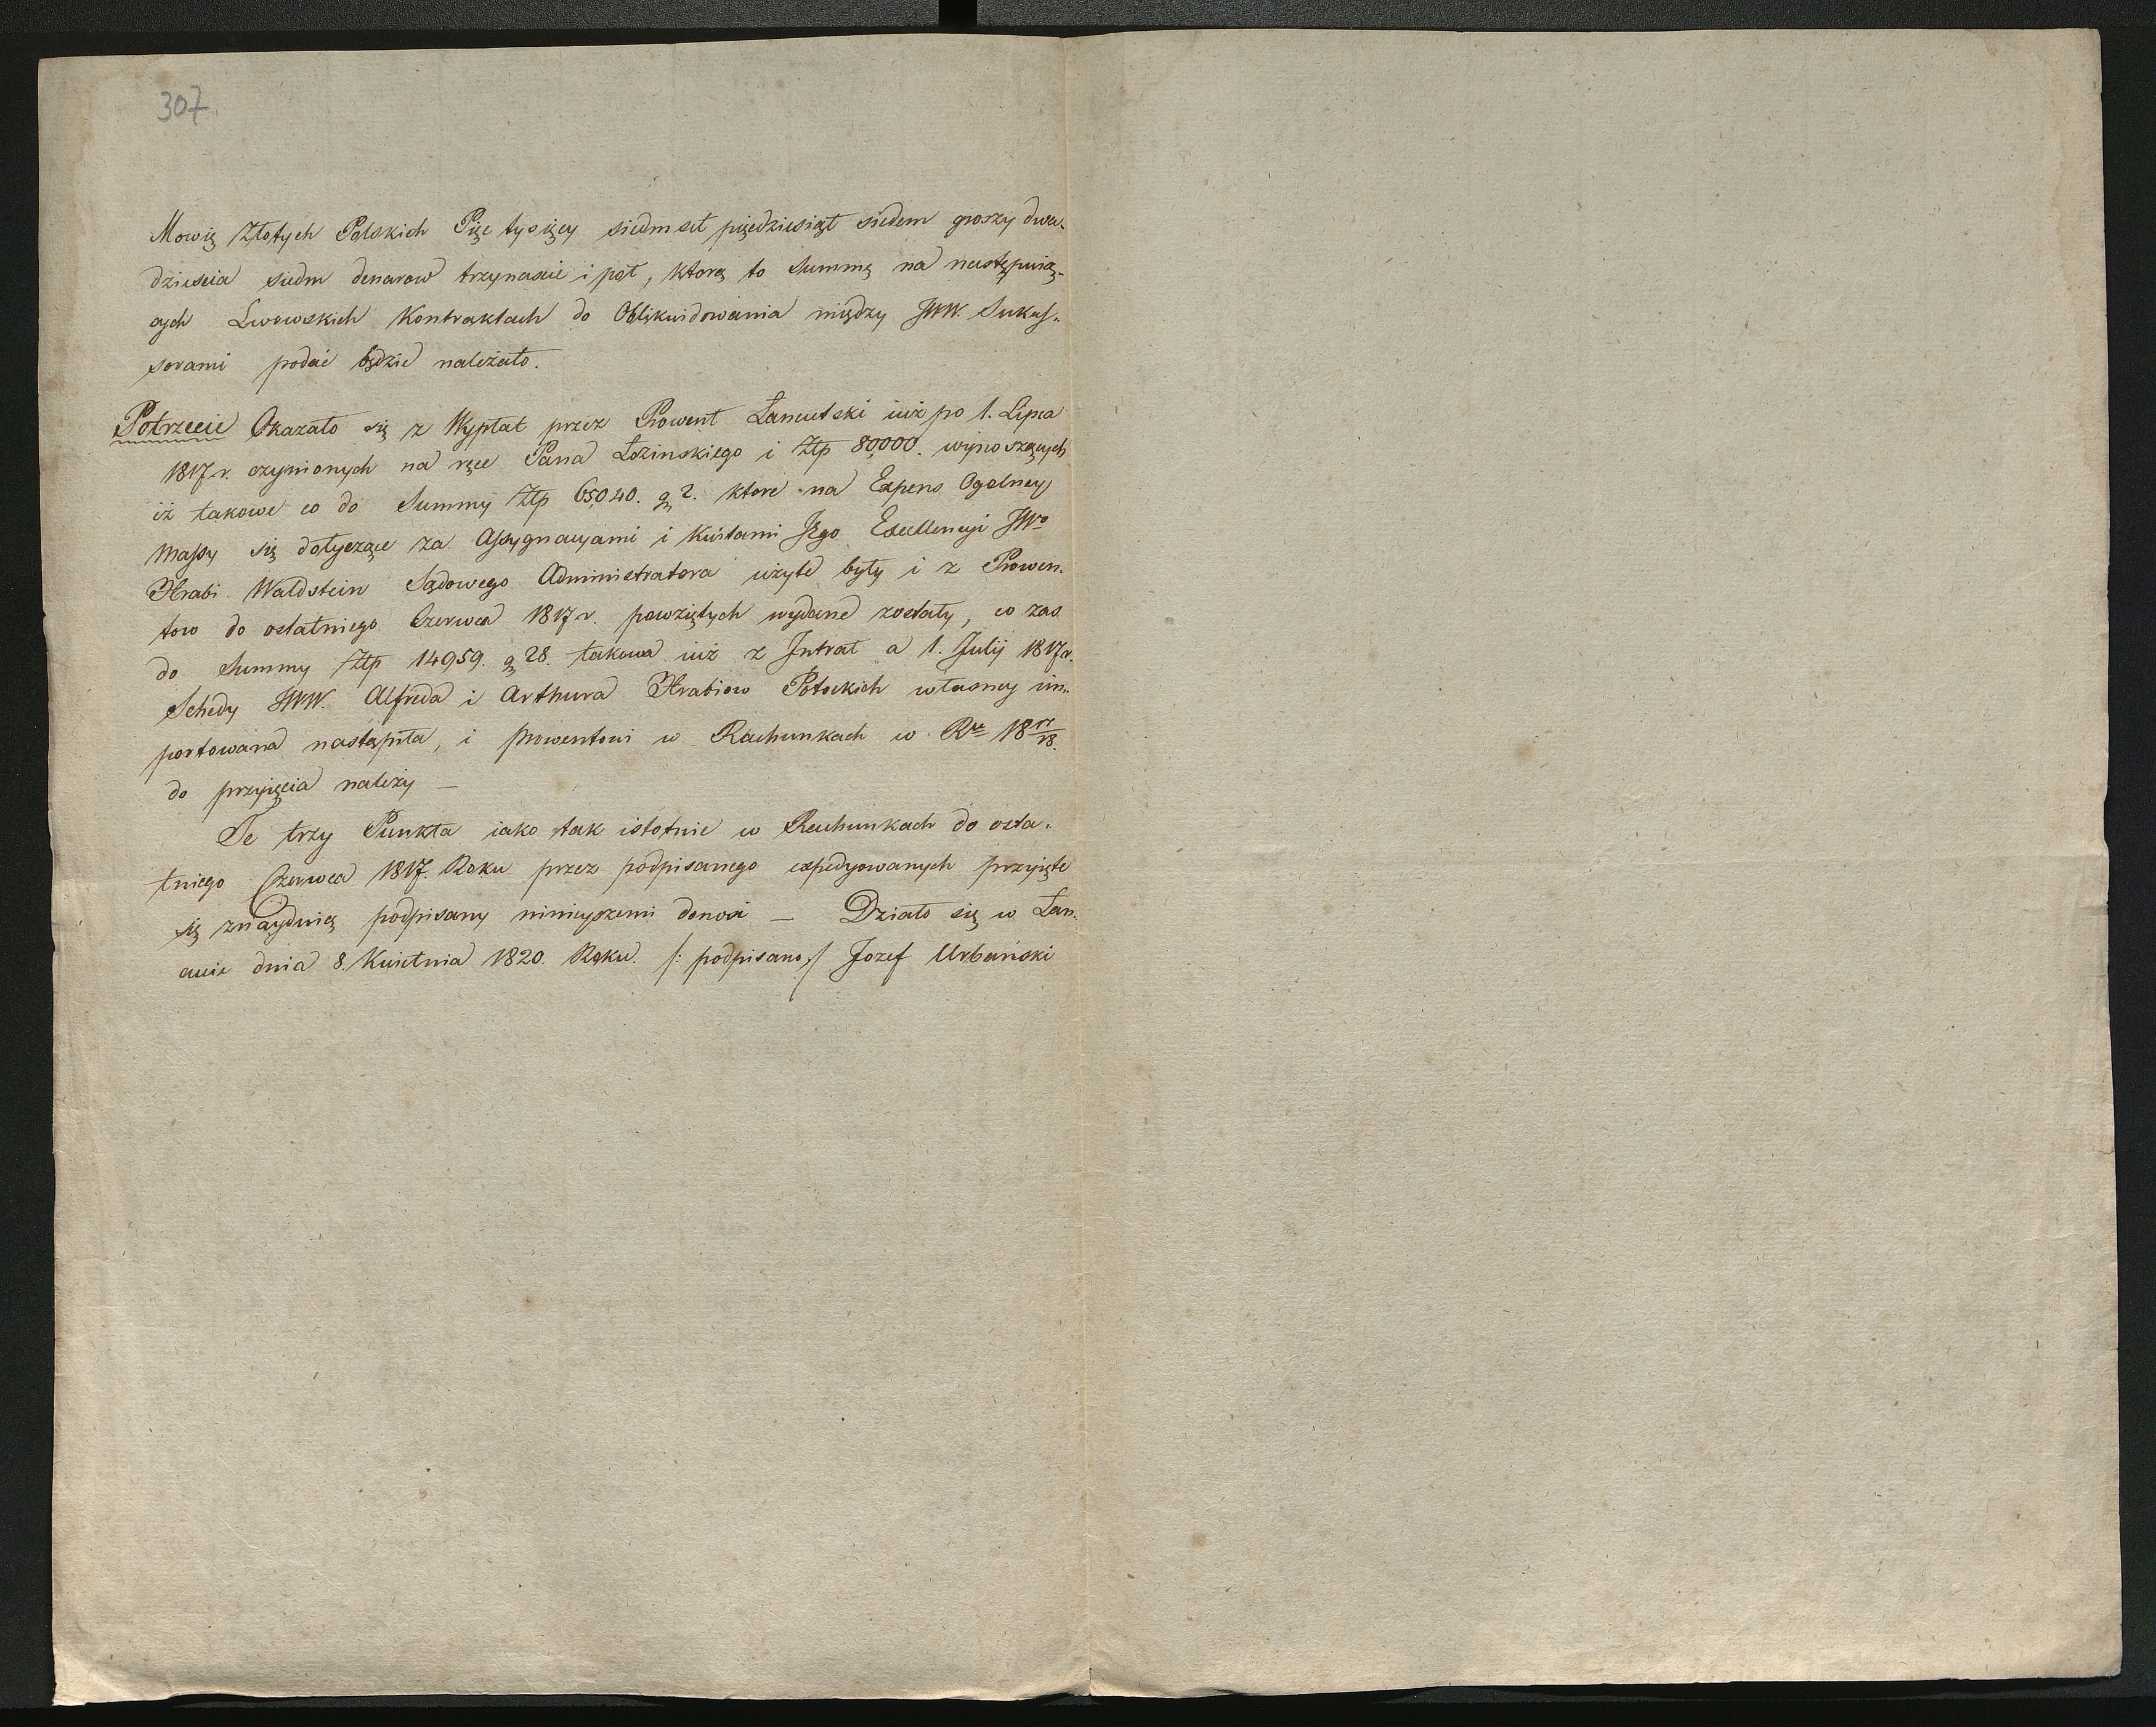 307.
Mowię Złotych Polskich Pięc tysięcy siedmset pięcdziesiąt siedem groszy dwa-
dziescia siedm denarow trzynascie i poł, ktorą to Summę na następuią-
cych Lwowskich Kontraktach do Oblikwidowania między JWW. Sukces-
sorami podać będzie należało.
Potrzecie Okazało się z Wypłat przez Prowent Łancutski iuż po 1. Lipca
1817 r. czynionych na ręce Pana Łozinskiego i Złp 80,000. wynoszących
iż takowe co do Summy Złp 65,040. g 2. ktore na Expens Ogolney
Massy się dotyczące za Assygnacyami i Kwitami Jego Excellencyi JWo
Hrabi Waldstein Sądowego Administratora użyte były i z Prowen-
tow do ostatniego Czerwca 1817 r. powziętych wydane zostały, co zas
do Summy Złp 14959. g 28. takowa iuż z Intrat a 1. Julij 1817 r.
Schedy JWW. Alfreda i Arthura Hrabiow Potockich własney im-
portowana nastąpiła, i Prowentowi w Rachunkach w Rku 18 17/18.
do przyięcia należy —
Te trzy Punkta iako tak istotnie w Rachunkach do osta-
tniego Czerwca 1817. Roku przez podpisanego expedyowanych przyięte
się znayduią podpisany ninieyszemi donosi — Działo się w Łan-
cucie dnia 8. Kwietnia 1820. Roku. /: podpisano :/ Jozef Urbański